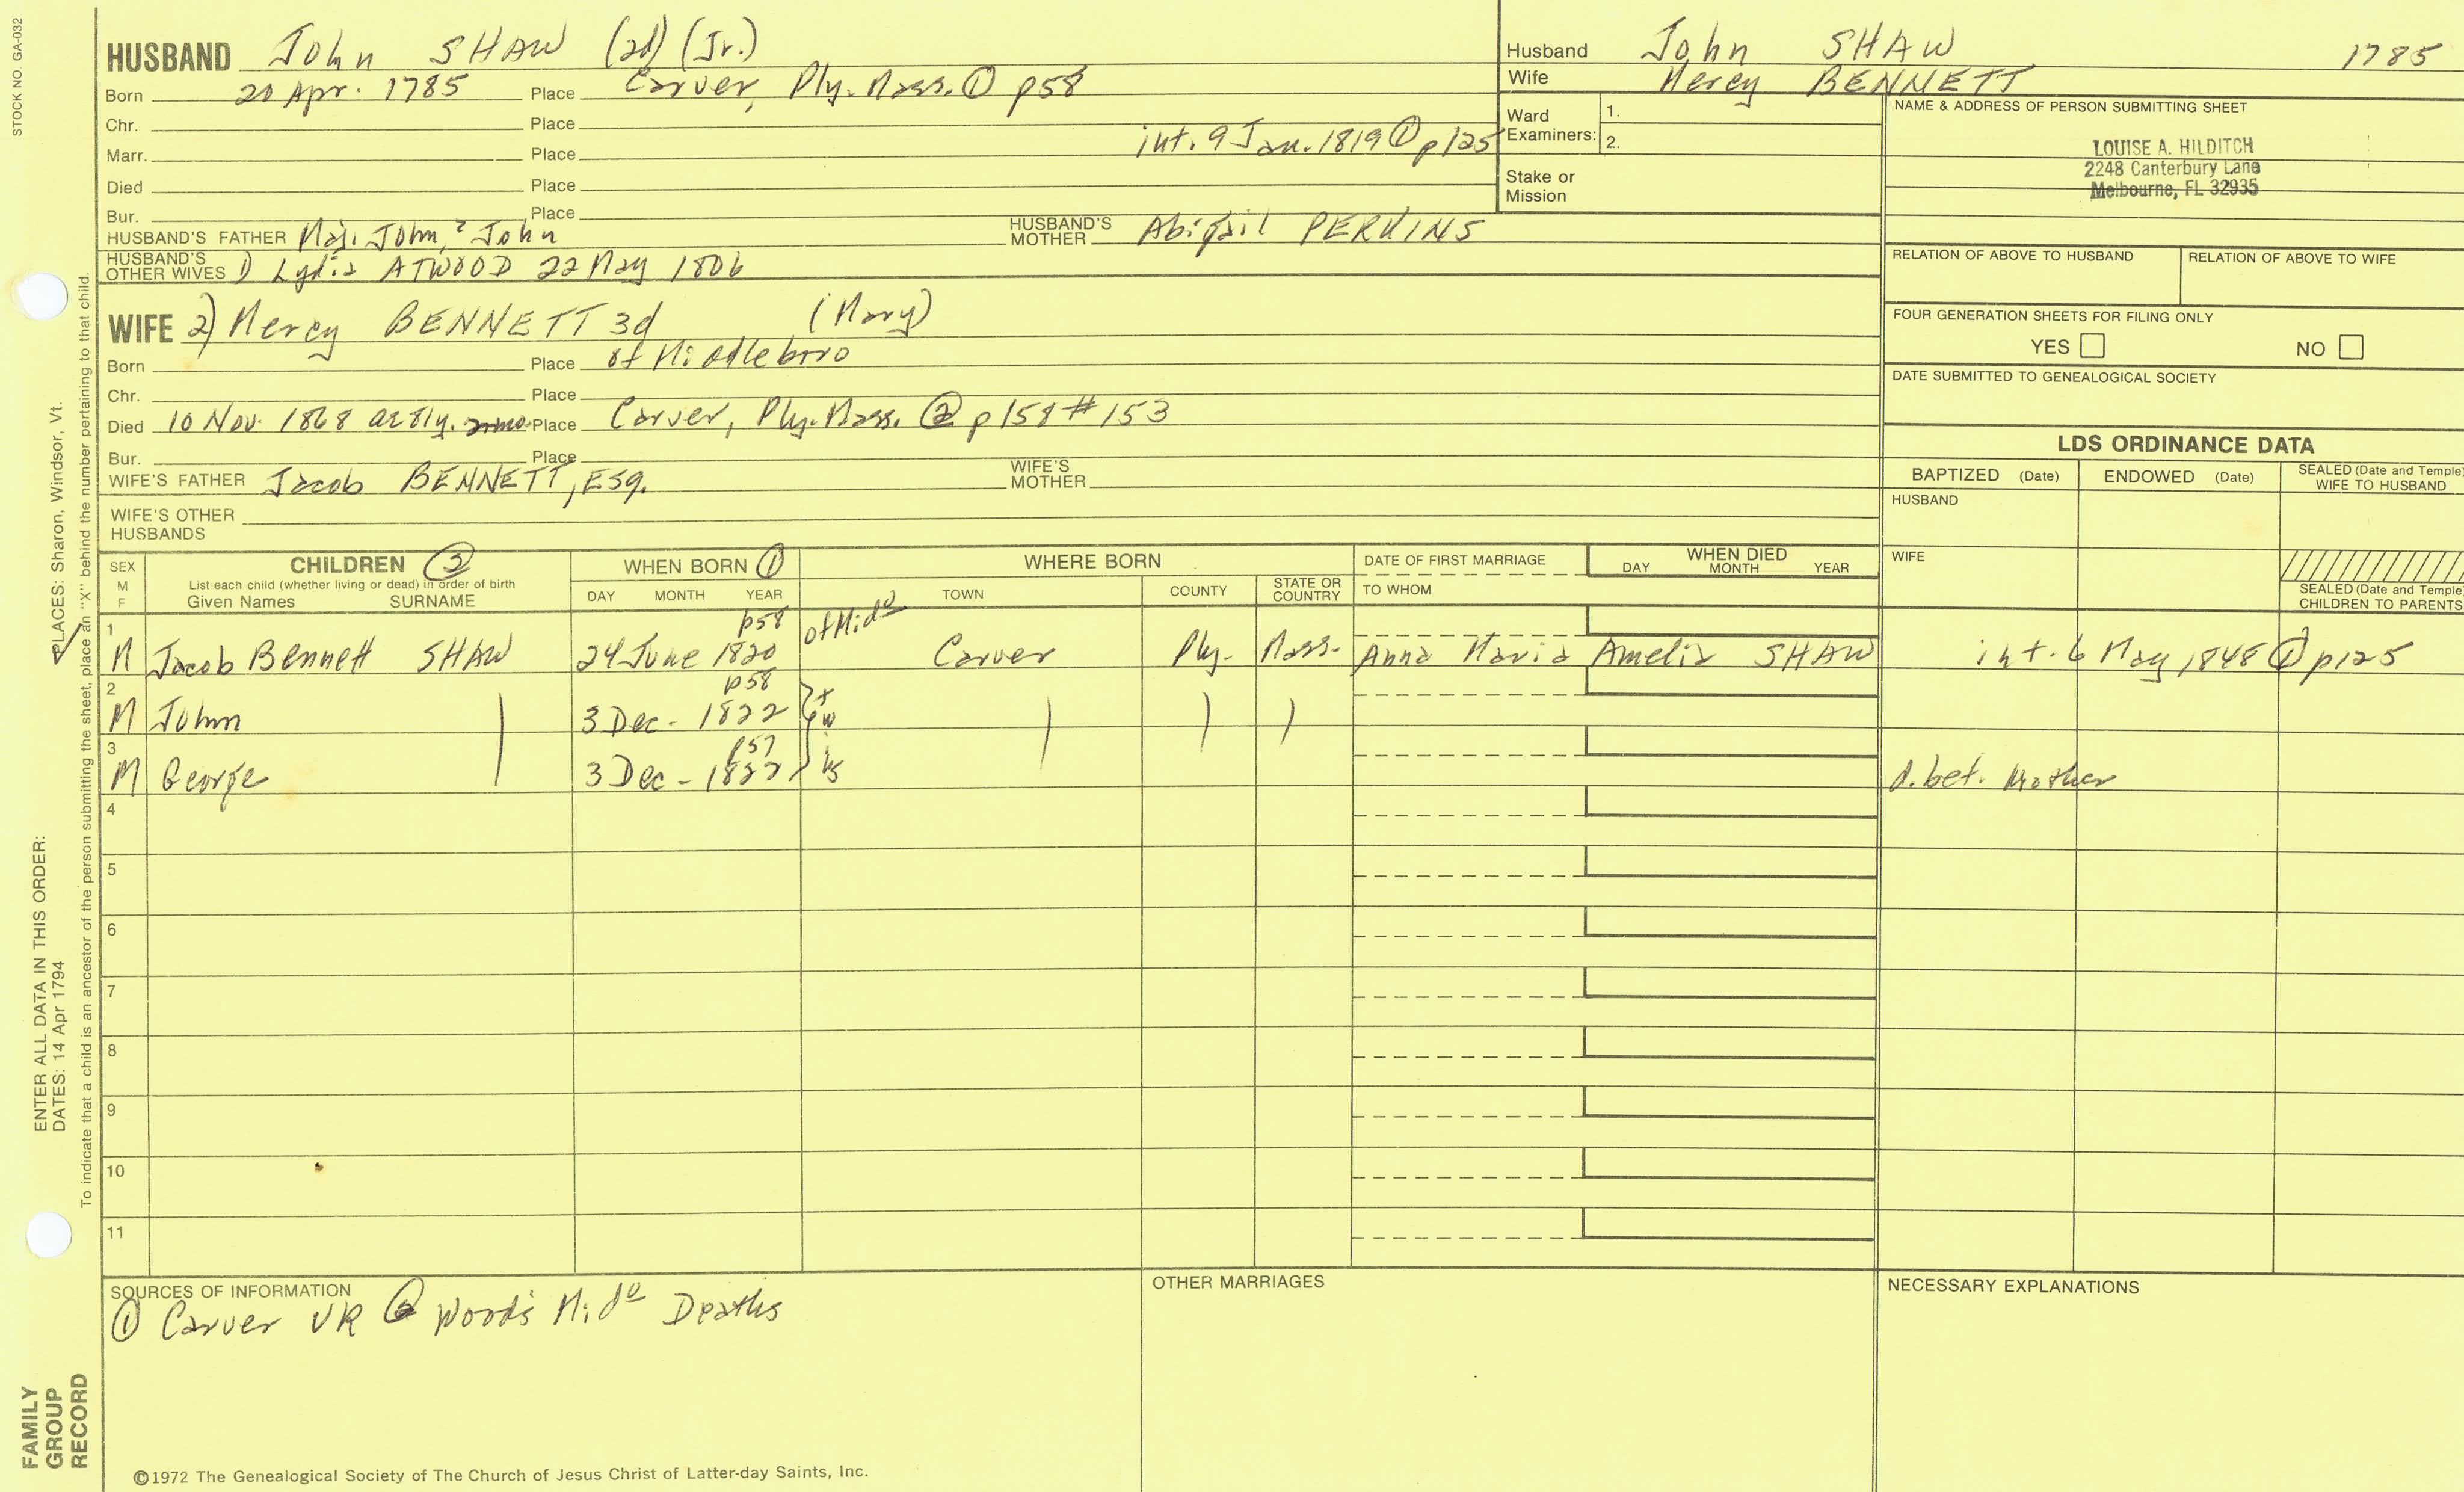 STOCK NO. GA-032
HUSBAND John SHAW (2d) (Jr.)
Born 20 Apr. 1785 Place Carver, Ply. Mass. ① p58
Chr. Place
Marr. Place int. 9 Jan. 1819 ① p125
Died Place
Bur. Place
HUSBAND'S FATHER Maj. John, ² John HUSBAND'S MOTHER Abigail PERKINS
HUSBAND'S OTHER WIVES 1) Lydia ATWOOD 22 May 1806
WIFE 2) Mercy BENNETT 3d (Mary)
Born Place of Middleboro
Chr. Place
Died 10 Nov. 1868 ae 81y. Place Carver, Ply. Mass. ② p158 #153
Bur. Place
WIFE'S FATHER Jacob BENNETT, Esq. WIFE'S MOTHER
WIFE'S OTHER HUSBANDS
Husband John SHAW 1785
Wife Mercy BENNETT
Ward Examiners: 1. 2.
Stake or Mission
NAME & ADDRESS OF PERSON SUBMITTING SHEET
LOUISE A. HILDITCH
2248 Canterbury Lane
Melbourne, FL 32935
RELATION OF ABOVE TO HUSBAND RELATION OF ABOVE TO WIFE
FOUR GENERATION SHEETS FOR FILING ONLY
YES NO
DATE SUBMITTED TO GENEALOGICAL SOCIETY
LDS ORDINANCE DATA
BAPTIZED (Date) ENDOWED (Date) SEALED (Date and Temple) WIFE TO HUSBAND
HUSBAND
WIFE
SEALED (Date and Temple) CHILDREN TO PARENTS
SEX M F
CHILDREN ②
List each child (whether living or dead) in order of birth
Given Names SURNAME
WHEN BORN ①
DAY MONTH YEAR
WHERE BORN
TOWN COUNTY STATE OR COUNTRY
DATE OF FIRST MARRIAGE
TO WHOM
WHEN DIED
DAY MONTH YEAR
p58 of Mido
1 M Jacob Bennett SHAW 24 June 1820 Carver Ply. Mass. Anna Maria Amelia SHAW int. 6 May 1848 ① p125
p58
2 M John 3 Dec - 1822 } tw
p57
3 M George 3 Dec - 1822 } ns d. bef. mother
4
5
6
7
8
9
10
11
SOURCES OF INFORMATION
① Carver VR ② Wood's Mido Deaths
OTHER MARRIAGES
NECESSARY EXPLANATIONS
©1972 The Genealogical Society of The Church of Jesus Christ of Latter-day Saints, Inc.
FAMILY GROUP RECORD
ENTER ALL DATA IN THIS ORDER:
DATES: 14 Apr 1794
PLACES: Sharon, Windsor, Vt.
To indicate that a child is an ancestor of the person submitting the sheet, place an "X" behind the number pertaining to that child.